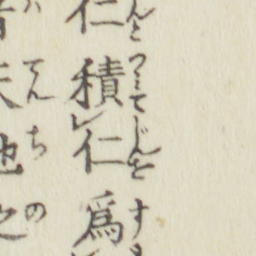 仁積レ仁爲
んとつミてじんをす
天地之
てんちの